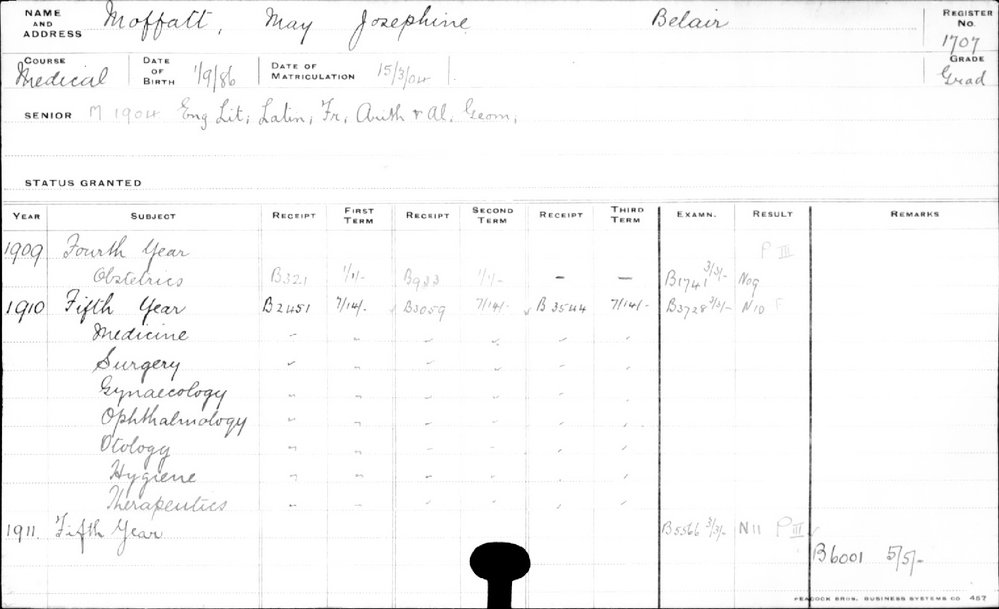 NAME AND ADDRESS Moffatt, May Josephine Belair REGISTER No. 1707
COURSE Medical DATE OF BIRTH 1/9/86 DATE OF MATRICULATION 15/3/04 GRADE Grad
SENIOR M 1904 Eng Lit, Latin, Fr, Arith & Al, Geom,
STATUS GRANTED
YEAR SUBJECT RECEIPT FIRST TERM RECEIPT SECOND TERM RECEIPT THIRD TERM EXAMN. RESULT REMARKS
1909 Fourth Year P III
Obstetrics B321 1/1/- B933 1/1/- — — B1741 3/3/- N09
1910 Fifth Year B2451 7/14/- B3059 7/14/- B3544 7/14/- B3728 3/3/- N10 F
Medicine
Surgery
Gynaecology
Ophthalmology
Otology
Hygiene
Therapeutics
1911. Fifth Year B5566 3/3/- N11 P III
B6001 5/5/-
PEACOCK BROS. BUSINESS SYSTEMS CO. 457